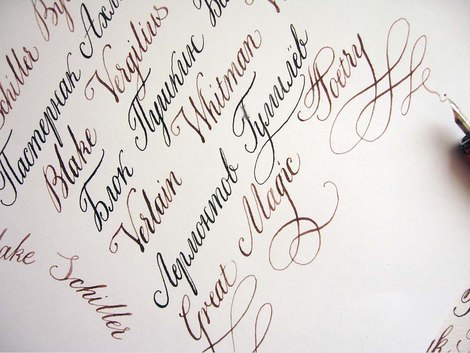 Schiller
Пастернак
Blake Vergilius
Блок Пушкин
Verlain Whitman
Лермонтов Гумилёв
Great Magic Poetry
Schiller